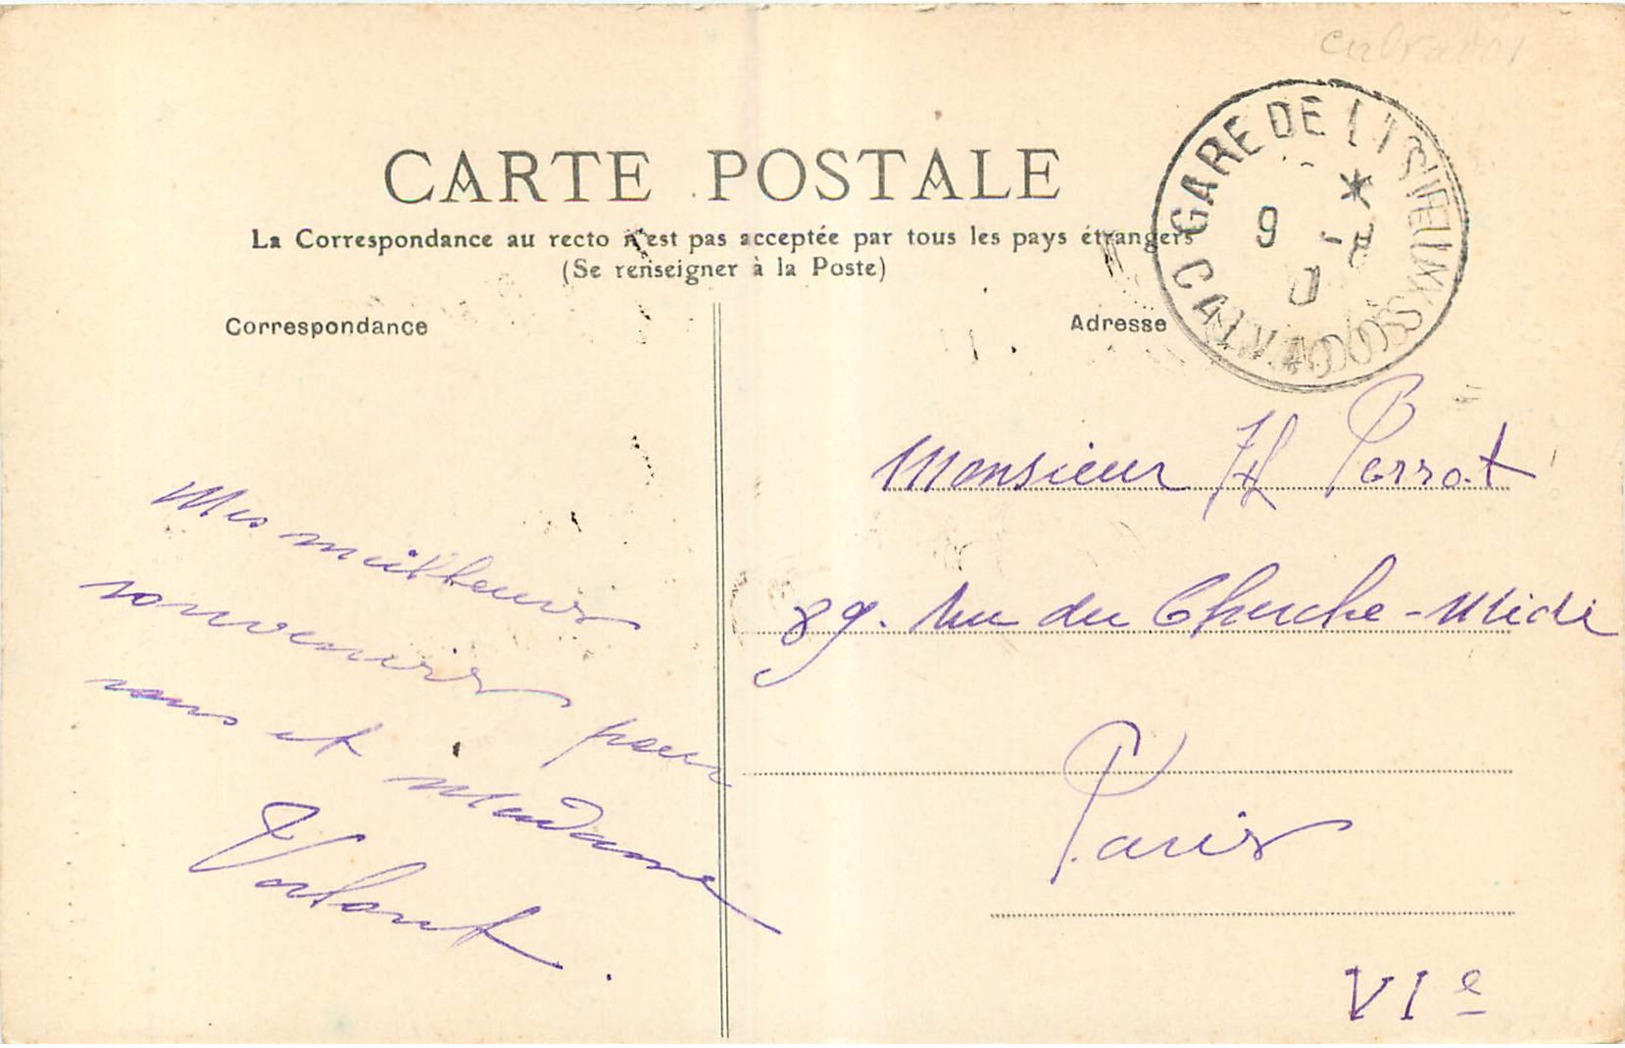 CARTE POSTALE
La Correspondance au recto n'est pas acceptée par tous les pays étrangers
(Se renseigner à la Poste)
Correspondance
Adresse
GARE DE LISIEUX
CALVADOS
9
Monsieur H Perrot
89. Rue du Cherche-Midi
Paris
VIe
Mes meilleurs
souvenirs pour
vous et Madame